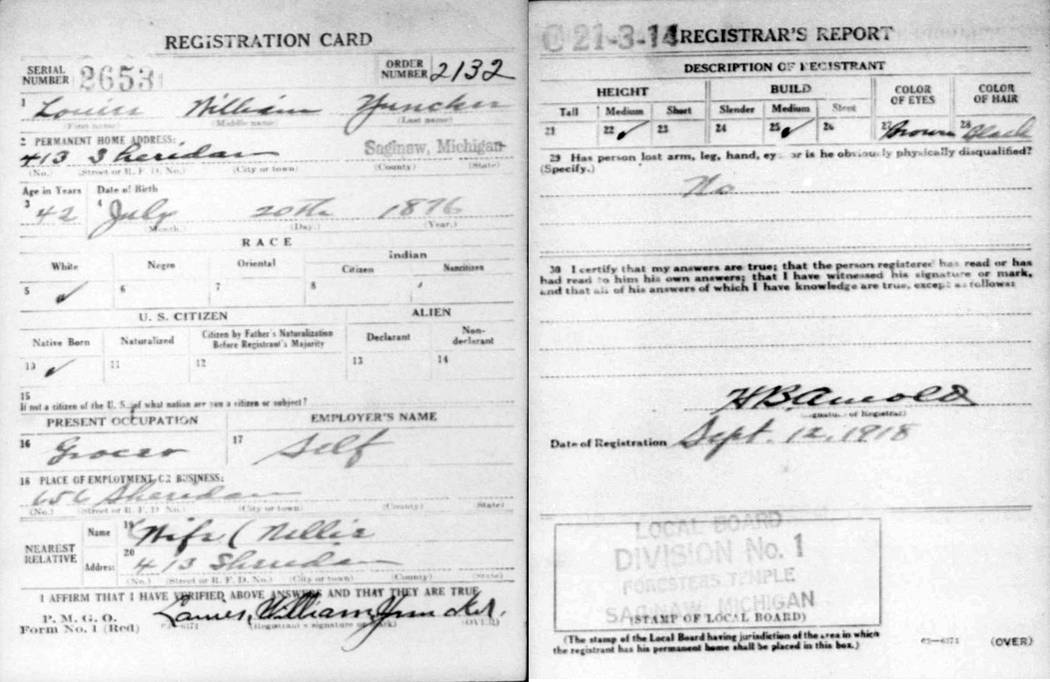 REGISTRATION CARD
SERIAL NUMBER 2653
ORDER NUMBER 2132
1 Louis William Yuncker
(First name) (Middle name) (Last name)
2 PERMANENT HOME ADDRESS:
413 Sheridan Saginaw, Michigan
(No.) (Street or R. F. D. No.) (City or town) (County) (State)
Age in Years Date of Birth
3 42 4 July 20th 1876
(Month.) (Day.) (Year.)
RACE
White Negro Oriental Indian
Citizen Noncitizen
5 ✓ 6 7 8
U. S. CITIZEN ALIEN
Native Born Naturalized Citizen by Father's Naturalization Before Registrant's Majority Declarant Non-declarant
10 ✓ 11 12 13 14
15
If not a citizen of the U. S., of what nation are you a citizen or subject?
PRESENT OCCUPATION EMPLOYER'S NAME
16 Grocer 17 Self
18 PLACE OF EMPLOYMENT OR BUSINESS:
656 Sheridan
(No.) (Street or R. F. D. No.) (City or town) (County) (State)
NEAREST RELATIVE
Name 19 Wife (Nellie
Address 20 413 Sheridan
(No.) (Street or R. F. D. No.) (City or town) (County) (State)
I AFFIRM THAT I HAVE VERIFIED ABOVE ANSWERS AND THAT THEY ARE TRUE
P. M. G. O.
Form No. 1 (Red) Louis William Yuncker.
(Registrant's signature or mark) (OVER)
C 21-3-14 REGISTRAR'S REPORT
DESCRIPTION OF REGISTRANT
HEIGHT BUILD COLOR OF EYES COLOR OF HAIR
Tall Medium Short Slender Medium Stout
21 22 ✓ 23 24 25 ✓ 26 27 Brown 28 Black
29 Has person lost arm, leg, hand, eye, or is he obviously physically disqualified?
(Specify.)
No
30 I certify that my answers are true; that the person registered has read or has
had read to him his own answers; that I have witnessed his signature or mark,
and that all of his answers of which I have knowledge are true, except as follows:
H B Arnold
(Signature of Registrar)
Date of Registration Sept. 12, 1918
LOCAL BOARD
DIVISION No. 1
FORESTERS TEMPLE
SAGINAW, MICHIGAN
(STAMP OF LOCAL BOARD)
(The stamp of the Local Board having jurisdiction of the area in which
the registrant has his permanent home shall be placed in this box.)
63—6171 (OVER)